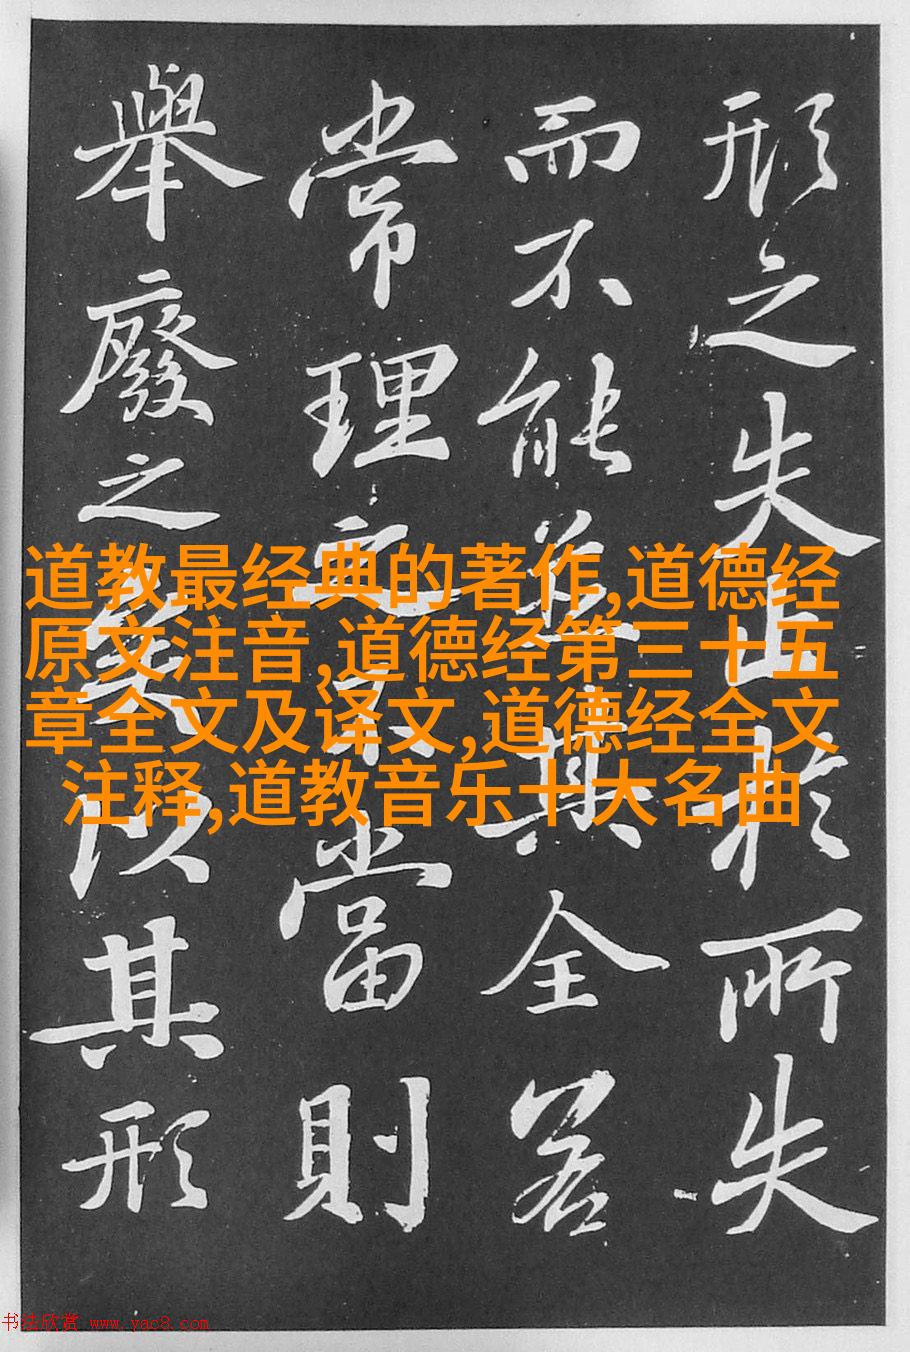 形之失止於所失
而不能其全若
常理之不當則
舉廢之矣以其形
道教最经典的著作,道德经
原文注音,道德经第三十五
章全文及译文,道德经全文
注释,道教音乐十大名曲
书法欣赏 www.yac8.com